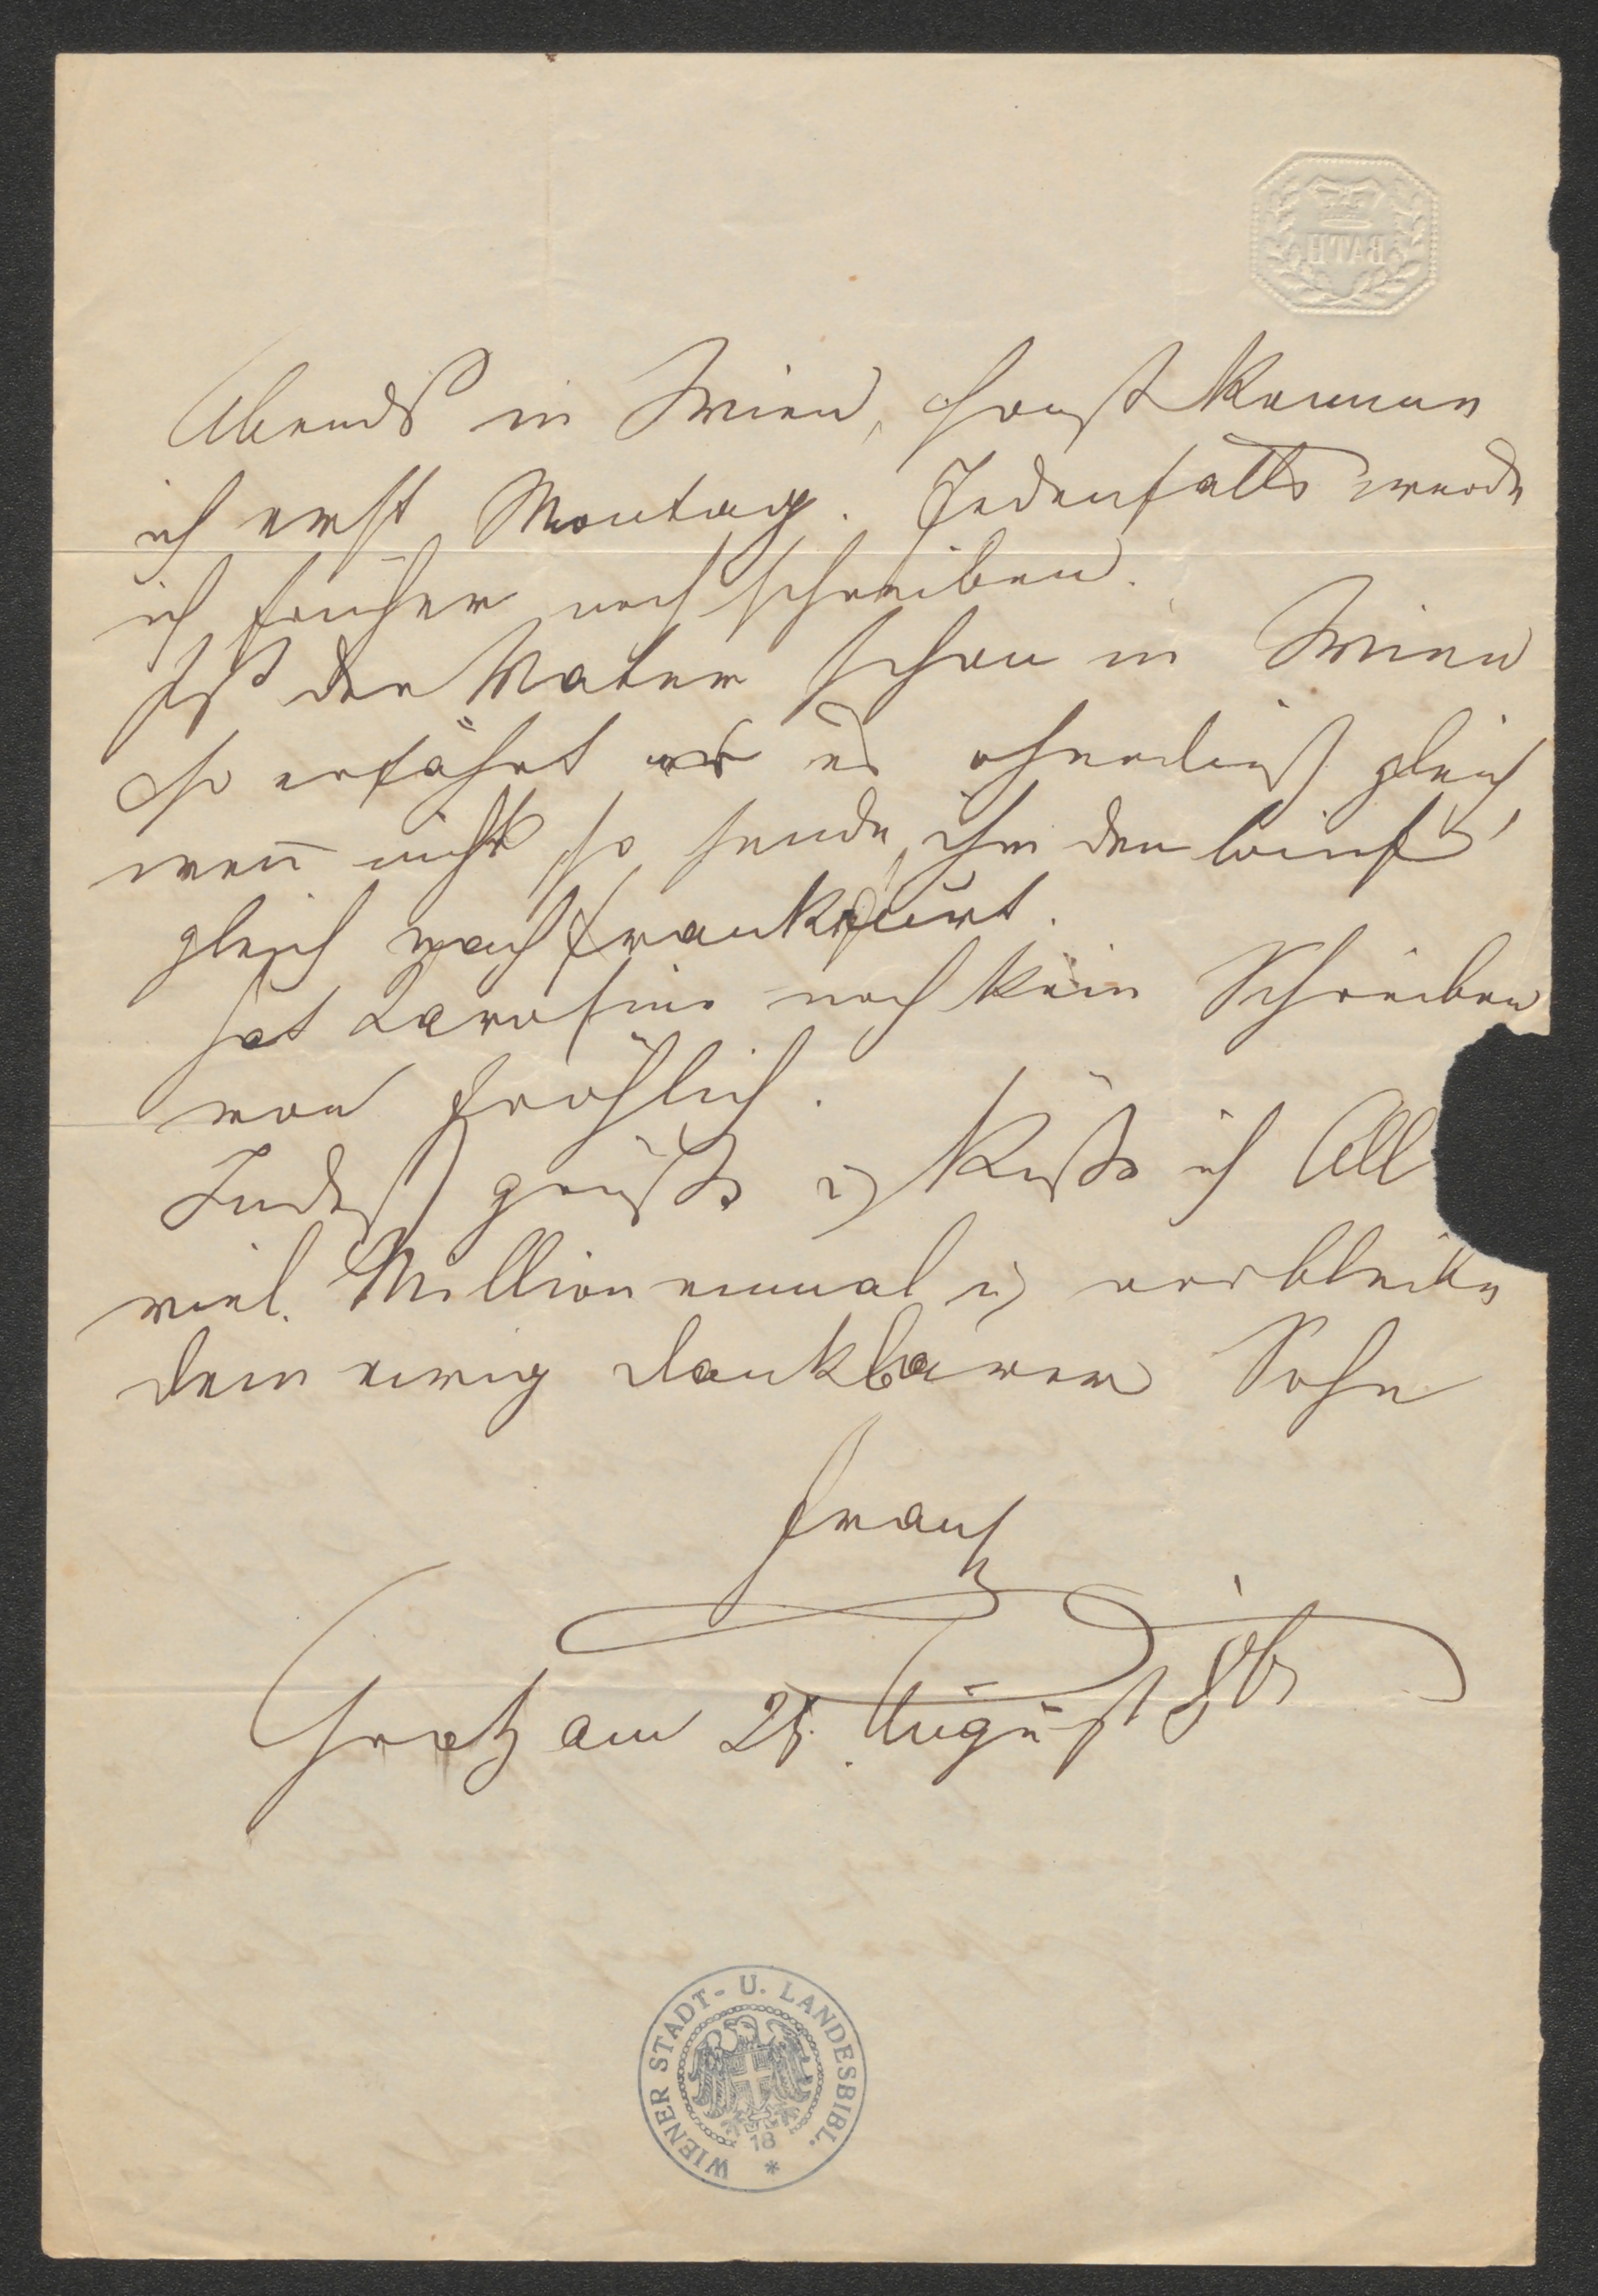 BATH
Abends in Wien, sonst komme
ich erst Montag. Jedenfalls werde
ich früher noch schreiben.
Ist der Vater schon in Wien
so erfährt er es ohnedieß gleich,
wen̄ nicht so sende ihm den Brief
gleich nach Frankfurt.
Hat Josefine noch kein Schreiben
von Fröhlich.
Indeß grüße u küße ich All
viel Millionenmal u verbleibe
dein ewig dankbarer Sohn
Franz
Gratz am 25. August
WIENER STADT- U. LANDESBIBL.
18